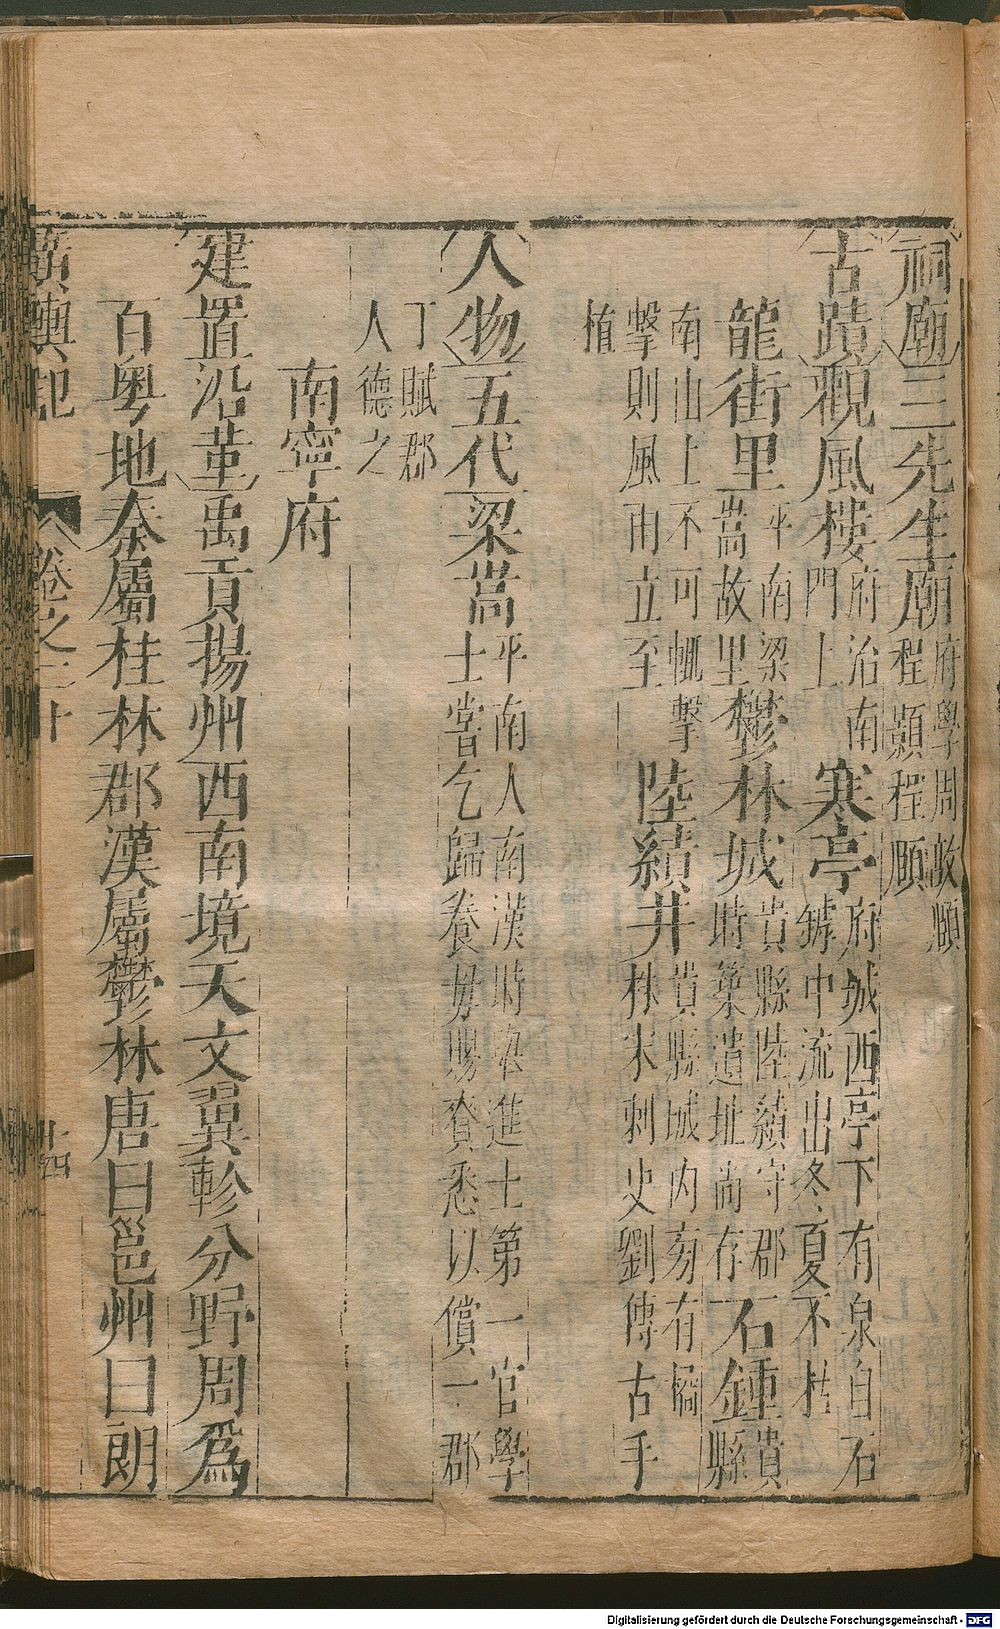 祠廟三先生廟府學周敦頤程顥程頤
古蹟觀風樓府治南門上寒亭府城西亭下有泉自石罅中流出冬夏不枯
龍街里平南梁嵩故里鬱林城貴縣陸績守郡時築遺址尚存石鍾貴縣
南山上不可輒擊擊則風雨立至陸績井貴縣城內旁有橘林宋刺史劉傳古手
植
人物五代梁嵩平南人南漢時舉進士第一官學士嘗乞歸養毋賜賚悉以償一郡
丁賦郡人德之
南寧府
建置沿革禹貢揚州西南境天文翼軫分野周爲
百粤地秦屬桂林郡漢屬鬱林唐曰邕州曰朗
廣輿記
卷之二十
十四
Digitalisierung gefördert durch die Deutsche Forschungsgemeinschaft - DFG